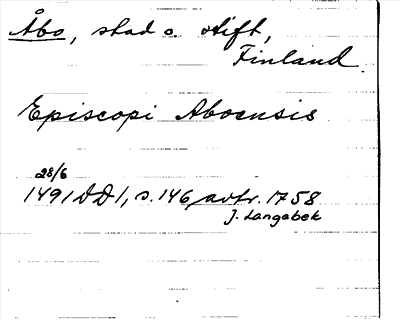 Åbo, stad o. stift,
Finland.
Episcopi Aboensis
28/6
1491 DD1, s. 146, avtr. 1758
J. Langebek